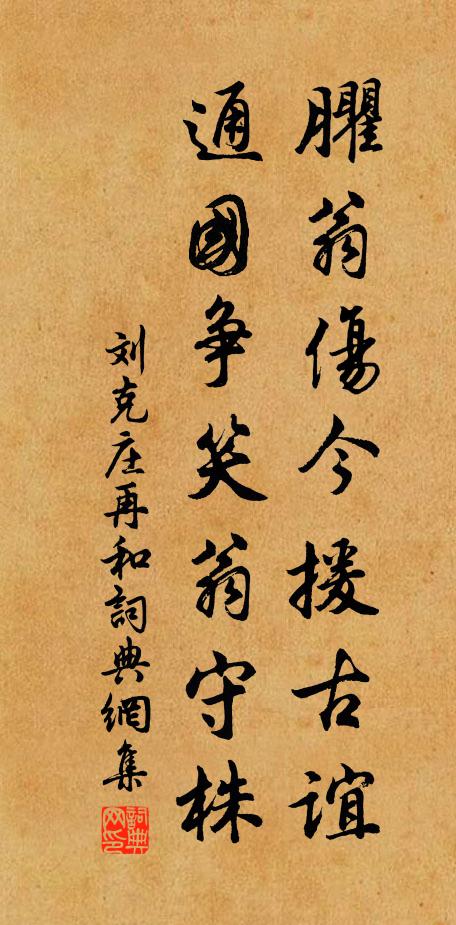 臞翁傷今援古誼
通國爭笑翁守株
刘克庄再和詞典網集
詞典网印